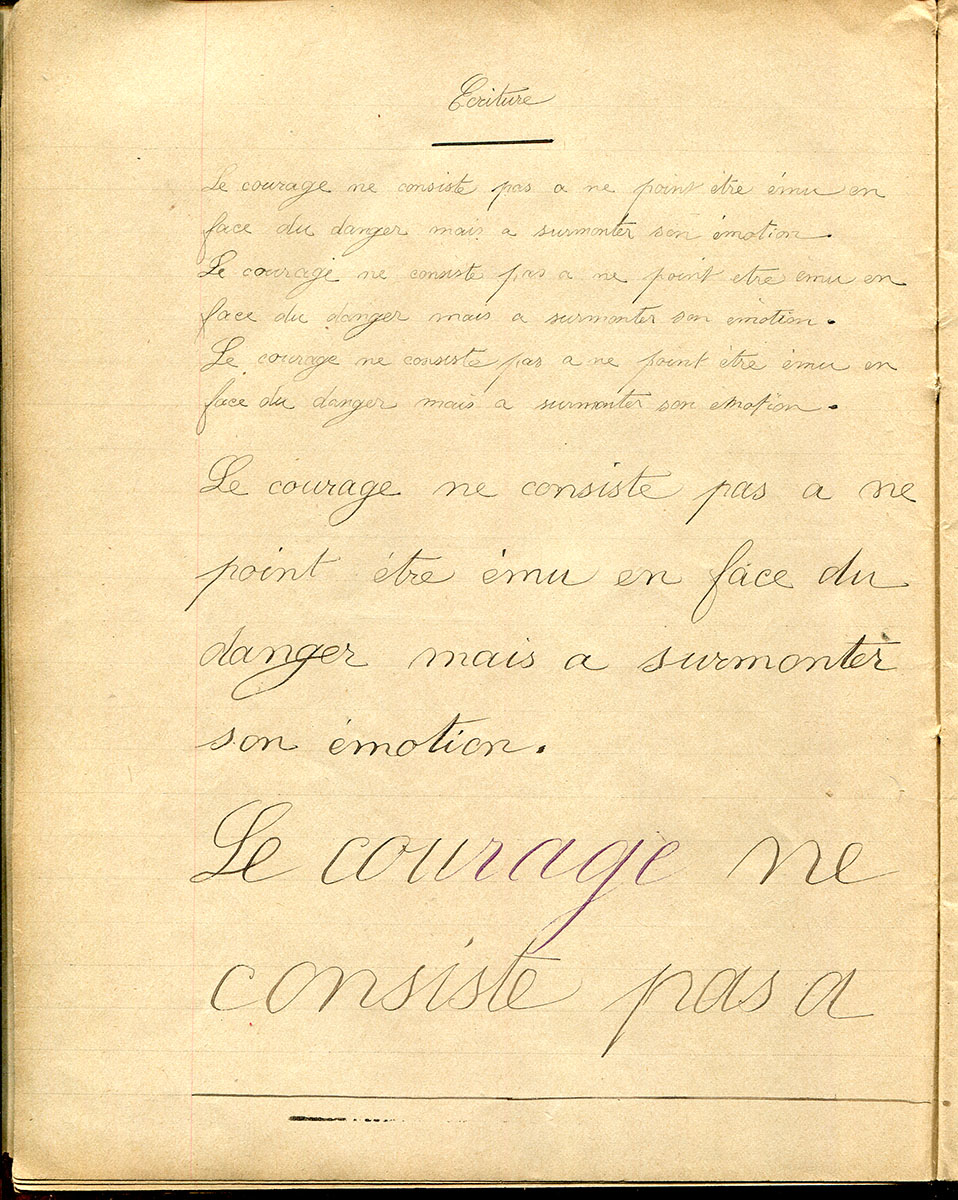 Ecriture
Le courage ne consiste pas a ne point être ému en
face du danger mais a surmonter son émotion.
Le courage ne consiste pas a ne point etre emu en
face du danger mais a surmonter son émotion.
Le courage ne consiste pas a ne point être ému en
face du danger mais a surmonter son emotion.
Le courage ne consiste pas a ne
point être ému en face du
danger mais a surmonter
son émotion.
Le courage ne
consiste pas a